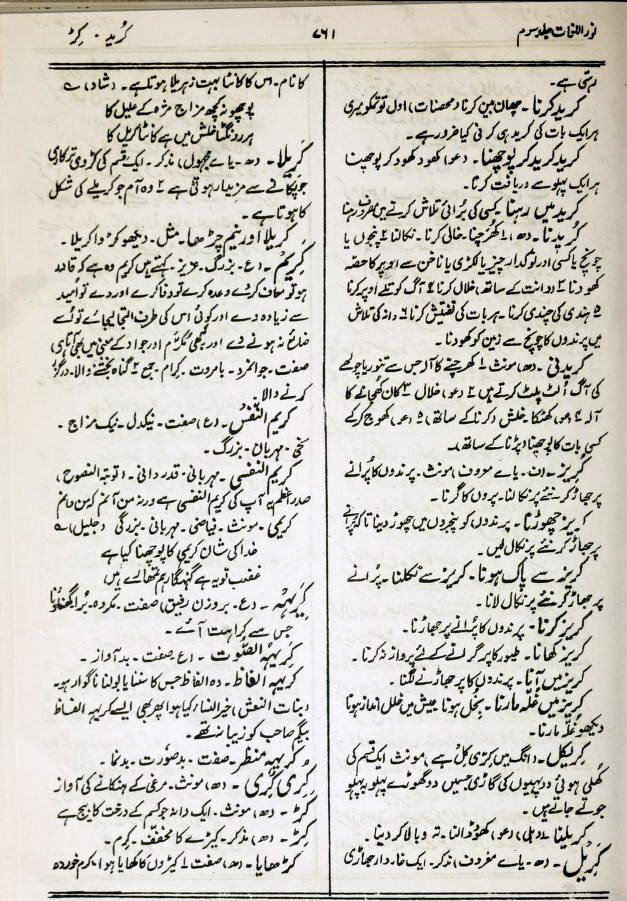 نور اللغات جلد سوم
۷۶۱
کُرید ۔ کِڑ
دہتی ہے ۔
کُرید کرنا ۔ چھان بین کرنا (محصنات) اوّل تو تمکو میری
ہر ایک بات کی کُرید ہی کرنی کیا ضرور ہے ۔
کُرید کُرید کر پوچھنا ۔ (عو) کھود کھود کر پوچھنا
ہر ایک پہلو سے دریافت کرنا ۔
کُرید میں رہنا ۔ کسی کی بُرائی تلاش کرتے میں مصروف رہنا
کُریدنا ۔ (ھ) ۱ کھُرچنا ۔ خالی کرنا ۔ نکالنا ۲ پنجوں یا
چونچ یا کسی اور نوکدار چیز یا لکڑی یا ناخن سے اوپر کا حصّہ
کھودنا ۳ (دانت کے ساتھ) خلال کرنا ۴ آگ کو تلے اوپر کرنا
۵ ہندی کی چندی کرنا ۔ ہر بات کی تفتیش کرنا ۶ دانہ کی تلاش
میں پرندوں کا چونچ سے زمین کو کھودنا ۔
کُریدنی ۔ (ھ) مونث ۱ کھرچنے کا آلہ جس سے تنور یا چولھے
کی آگ اُلٹ پلٹ کرتے ہیں ۲ (عو) خلال ۳ کان کھُجانے کا
آلہ ۴ (عو) کھٹکا ۔ خلش (کرنا کے ساتھ) ۵ (عو) کھوج کر کے
کسی بات کا پوچھنا (پڑنا کے ساتھ)۔
کُریز ۔ (ف ۔ یاے معروف) مونث ۔ پرندوں کا پُرانے
پر جھاڑ کر نئے پر نکالنا ۔ پروں کا گرنا ۔
کریز چھوڑنا ۔ پرندوں کو پنجروں میں چھوڑ دینا تاکہ پُرانے
پر جھاڑ کر نئے پر نکال لیں ۔
کریز سے پاک ہونا ۔ کریز سے نکلنا ۔ پُرانے
پر جھاڑ کر نئے پر نکال لانا ۔
کریز کرنا ۔ پرندوں کا پُرانے پر جھاڑنا ۔
کریز کھانا ۔ طیور کا پر گرانے کے لئے پرواز نہ کرنا ۔
کریز میں آنا ۔ پرندوں کا پر جھاڑنے لگنا ۔
کریز میں غلّہ مارنا ۔ مخل ہونا عیش میں خلل انداز ہونا
دیکھو غلّہ مارنا ۔
کریکل ۔ مونث ایک قسم کی
کھُلی ہوئی دو پہیوں کی گاڑی جسمیں دو گھوڑے پہلو بہ پہلو
جوتے جاتے ہیں ۔
کریلینا (دہلی) (عو) کھوڈالنا ۔ تہ و بالا کر دینا ۔
کَرِیل ۔ (ھ ۔ یاے معروف) مذکر ۔ ایک خاردار جھاڑی
کا نام ۔ اس کا کانٹا بہت زہریلا ہوتا ہے ۔ (شاد) ؎
پوچھو نہ کچھ مزاج مژہ کے علیل کا
ہر رونگٹا خلش میں ہے کانٹا کریل کا
کَریلا ۔ (ھ ۔ یاے مجہول) مذکر ۔ ایک قسم کی کڑوی ترکاری
جو پکانے سے مزیدار ہوتی ہے ۲ وہ آم جو کریلے کی شکل
کا ہوتا ہے ۔
کریلا اور نیم چڑھا ۔ مثل ۔ دیکھو کڑوا کریلا ۔
کَریم ۔ (ع ۔ بزرگ ۔ عزیز ۔ کہتے ہیں کریم وہ ہے کہ قادر
ہو تو معاف کر دے وعدہ کرے تو وفا کرے اور دے تو اُمید
سے زیادہ دے اور کوئی اس کی طرف التجا لیجائے تو اُسے
ضائع نہ ہونے دے اور کبھی مکرم اور جواد کے معنی میں بھی آتا ہے)
صفت ۔ جوانمرد ۔ بامروت ۔ کِرام ۔ جمع ۲ گناہ بخشنے والا ۔ درگزر
کرنے والا ۔
کریم النّفس ۔ (ع) صفت ۔ نیکدل ۔ نیک مزاج ۔
سخی ۔ مہربان ۔ بزرگ ۔
کریم النفسی ۔ مہربانی ۔ قدردانی ۔ (توبۃ النصوح)
صدر اعظم یہ آپ کی کریم النفسی ہے ورنہ من آنم کہ من دانم
کریمی ۔ مونث ۔ فیاضی ۔ مہربانی ۔ بزرگی (جلیل) ؎
خدا کی شان کریمی کا پوچھنا کیا ہے
غضب تو یہ ہے گنہگار ہم تمھارے ہیں
کَرِیْہ ۔ (ع ۔ بروزن رفیق) صفت ۔ مکروہ ۔ بُرا ۔ گھنونا
جس سے کراہت آئے ۔
کریہہ الصّوت ۔ (ع) صفت ۔ بد آواز ۔
کریہہ الفاظ ۔ وہ الفاظ جن کا سننا یا بولنا ناگوار ہو۔
(بنات النعش) خیر النساء کیا ہوا پھر بھی ایسے کریہہ الفاظ
بیگم صاحب کو زیبا نہ تھے ۔
کریہہ منظر ۔ صفت ۔ بدصورت ۔ بدنما ۔
کُری کُری ۔ (ھ) مونث ۔ مرغی کے ہنکانے کی آواز
کَڑ ۔ (ھ) مونث ۔ ایک دانہ جو کسم کے درخت کا بیج ہے
کِڑ ۔ (ھ) مذکر ۔ کیڑے کا مخفف ۔ کِرم ۔
کِڑ کھایا ۔ (ھ) صفت ۱ کیڑوں کا کھایا ہوا ۔ کرم خوردہ